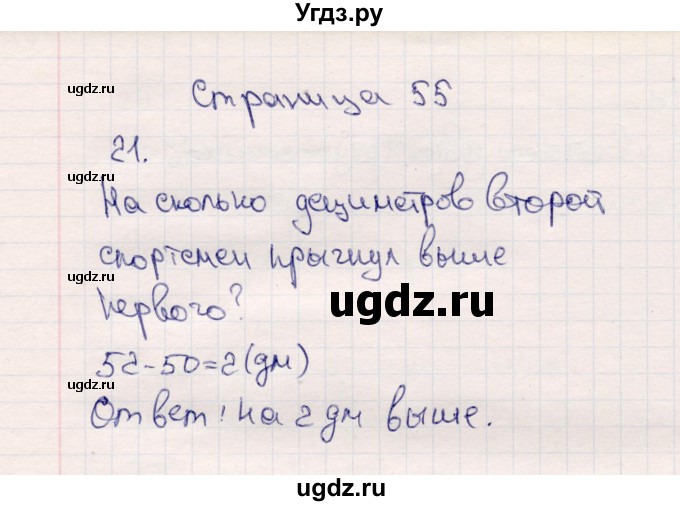 Угдз.ру
ugdz.ru
Страница 55
ugdz.ru
21.
ugdz.ru
На сколько дециметров второй
спортсмен прыгнул выше
ugdz.ru
первого?
ugdz.ru
52-50=2(дм)
ugdz.ru
Ответ: на 2 дм выше.
ugdz.ru
ugdz.ru